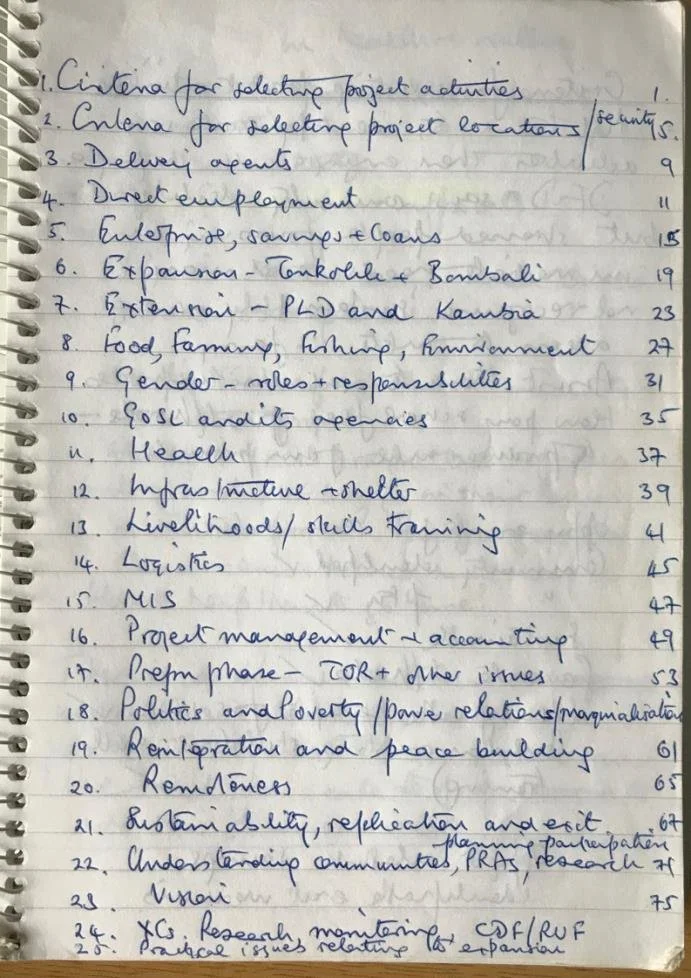 1. Criteria for selecting project activities 1.
2. Criteria for selecting project locations/security 5.
3. Delivery agents 9
4. Direct employment 11
5. Enterprise, savings + loans 15
6. Expansion - Tonkolili + Bombali 19
7. Extension - PLD and Kambia 23
8 Food, Farming, Fishing, Environment 27
9. Gender - roles + responsibilities 31
10. GOSL and its agencies 35
11. Health 37
12. Infrastructure + shelter 39
13. Livelihoods/skills training 41
14. Logistics 45
15. MIS 47
16. Project management + accounting 49
17. Prepn phase - TOR + other issues 53
18. Politics and Poverty/power relations/marginalisation
19. Reintegration and peace building 61
20. Remoteness 65
21. Sustainability, replication and exit .67
planning participation
22. Understanding communities, PRAs, research 71
23. Vision 75
24. XCs. Research, monitoring, CDF/RUF
25. Practical issues relating to expansion